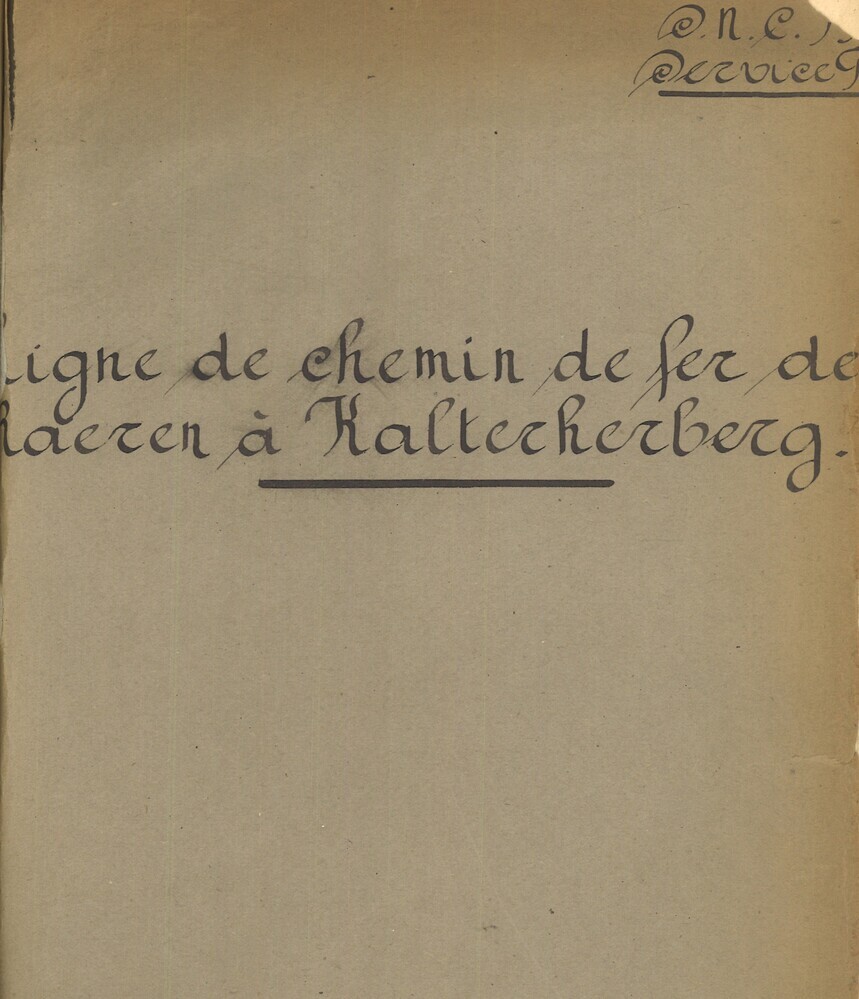 S.N.C.
Service
Ligne de chemin de fer de
Raeren à Kalterherberg.